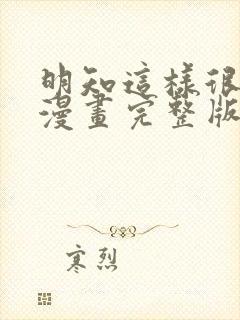 明知這樣很
漫畫完整版
寒烈